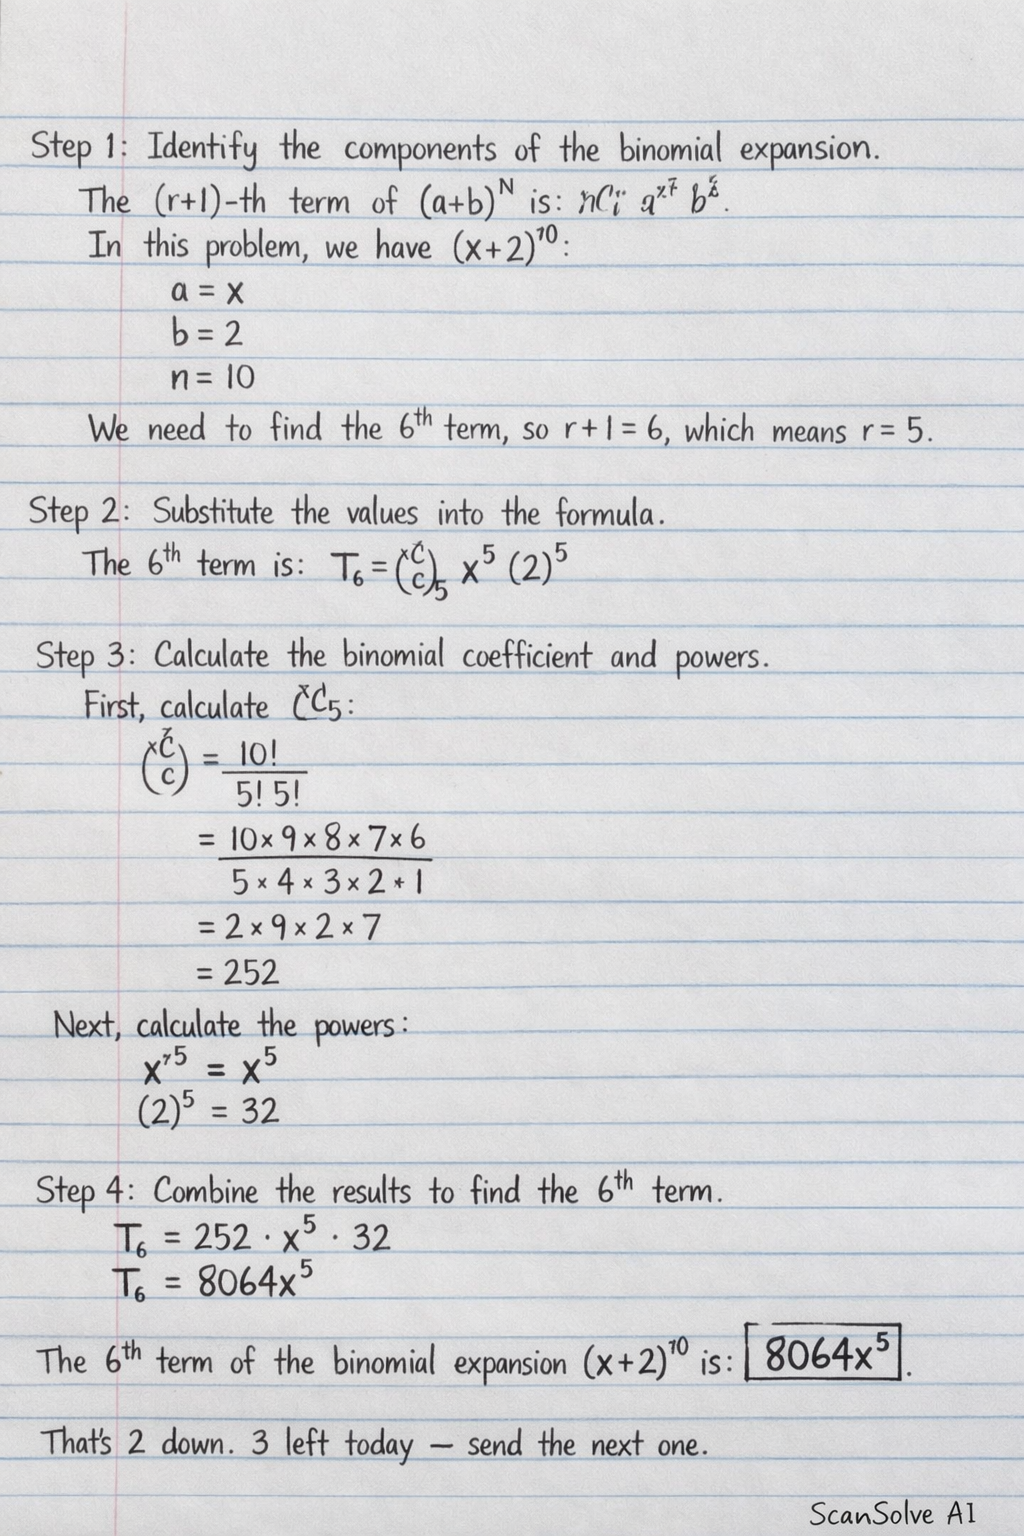 Step 1: Identify the components of the binomial expansion.
The (r+1)-th term of (a+b)^N is:
In this problem, we have (x+2)^10:
a = x
b = 2
n = 10
We need to find the 6th term, so r+1 = 6, which means r = 5.
Step 2: Substitute the values into the formula.
The 6th term is: T₆ = x⁵ (2)⁵
Step 3: Calculate the binomial coefficient and powers.
First, calculate
= 10!
5! 5!
= 10×9×8×7×6
5×4×3×2*1
= 2×9×2×7
= 252
Next, calculate the powers:
= x⁵
(2)⁵ = 32
Step 4: Combine the results to find the 6th term.
T₆ = 252 · x⁵ · 32
T₆ = 8064x⁵
The 6th term of the binomial expansion (x+2)^10 is: 8064x⁵.
That's 2 down. 3 left today — send the next one.
ScanSolve AI